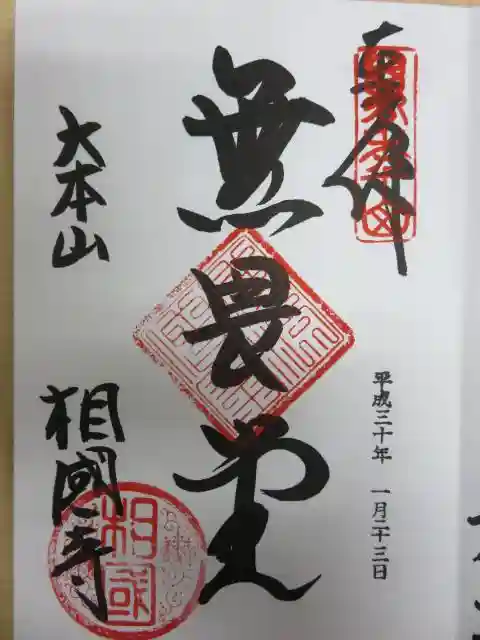 奉拝
無畏堂
平成三十年 一月二十三日
大本山
相國寺
相國